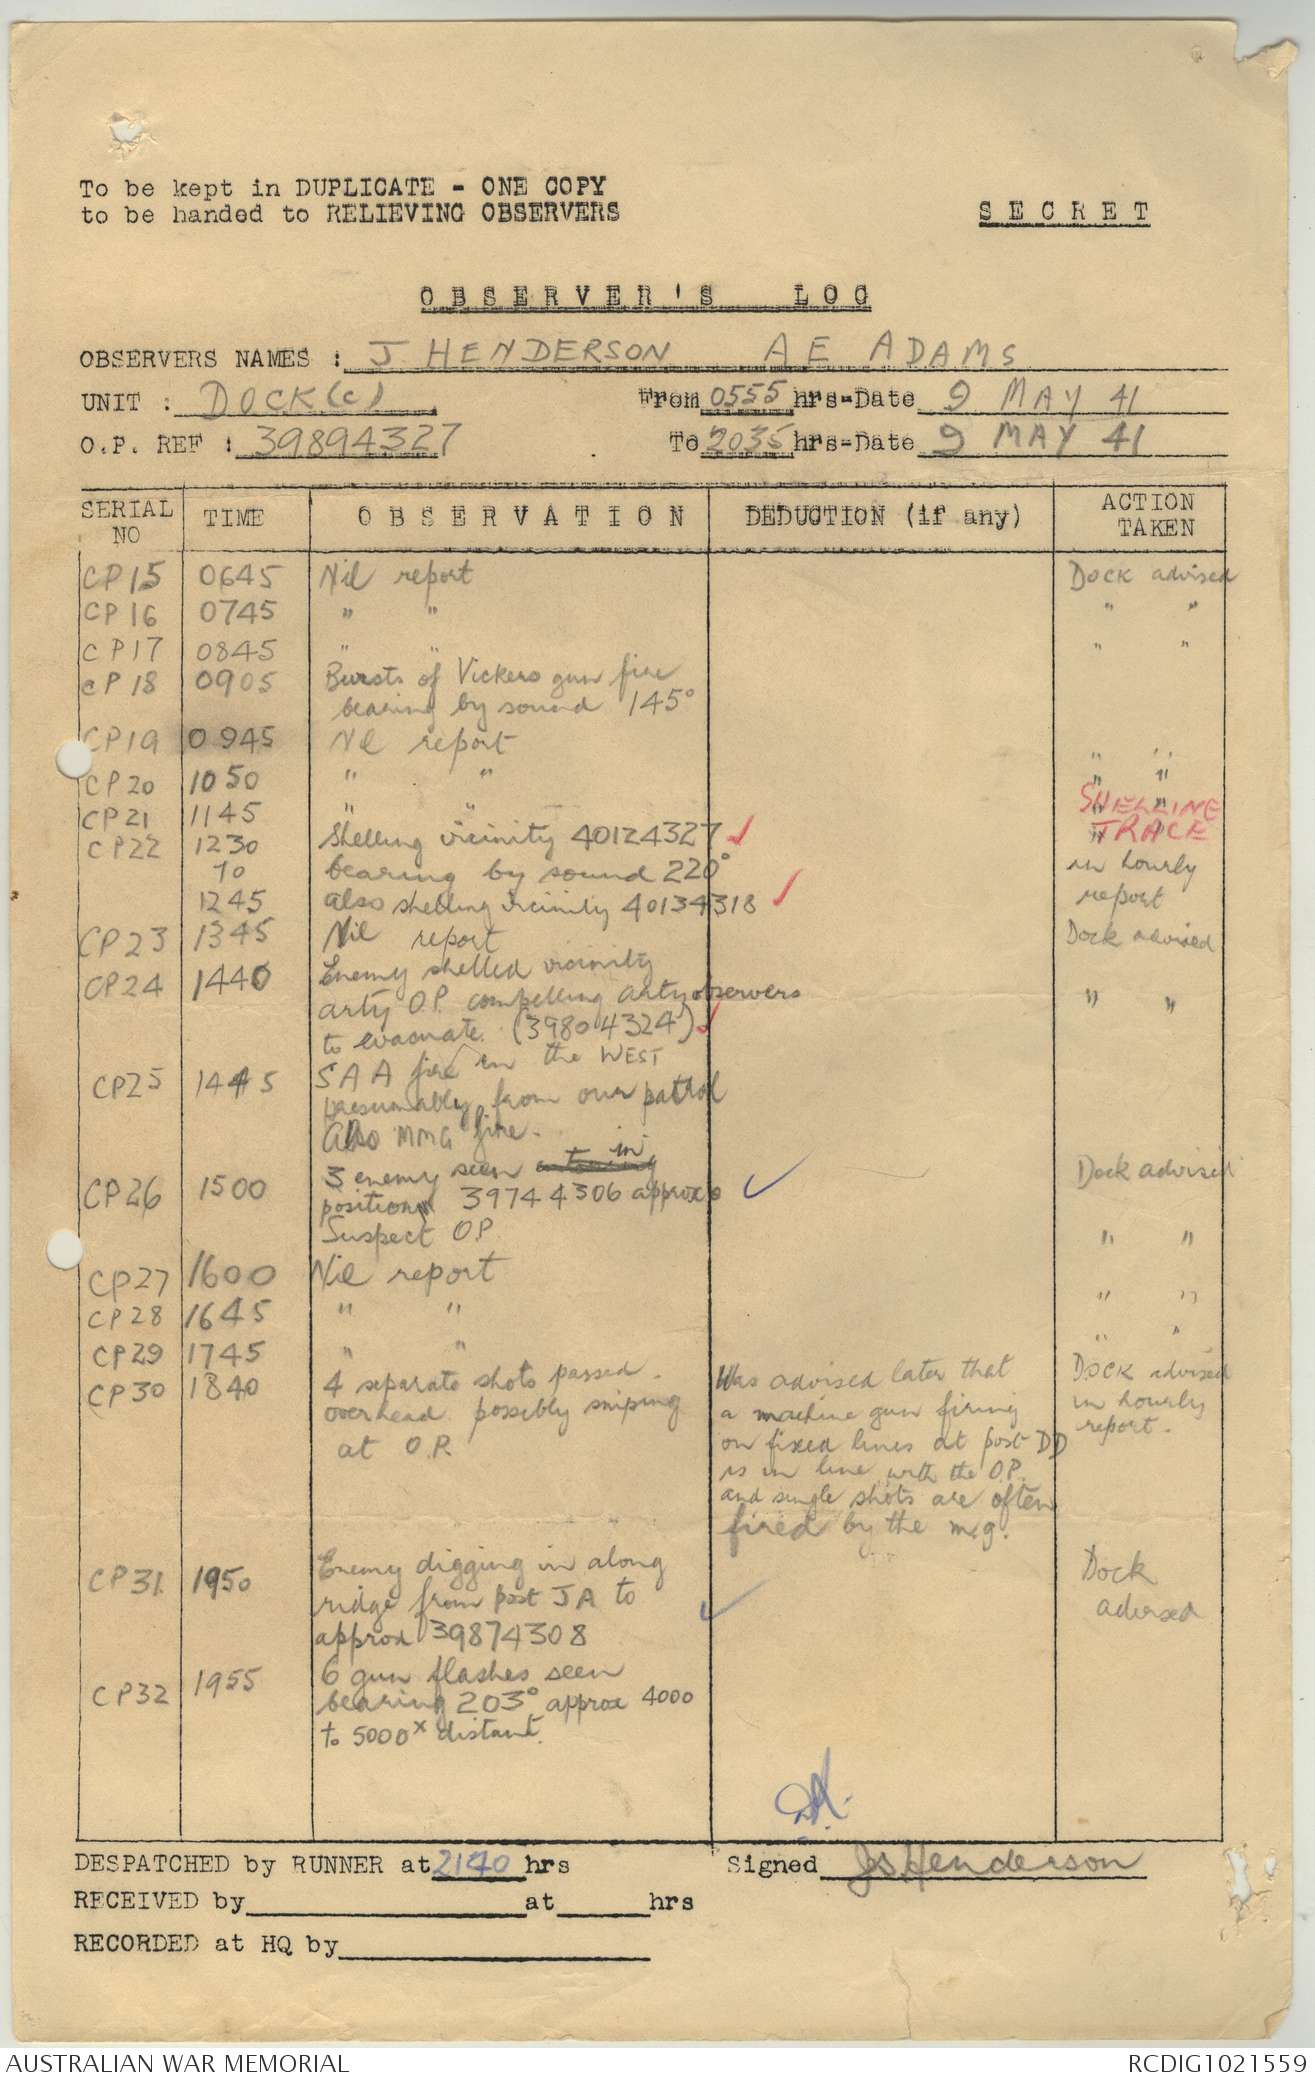 To be kept in DUPLICATE - ONE COPY
to be handed to RELIEVING OBSERVERS
SECRET
OBSERVER'S LOG
OBSERVERS NAMES : J HENDERSON AE ADAMS
UNIT : DOCK (C) From 0555 hrs-Date 9 MAY 41
O.P. REF : 39894327 To 2035 hrs-Date 9 MAY 41
SERIAL NO TIME OBSERVATION DEDUCTION (if any) ACTION TAKEN
CP15 0645 Nil report DOCK advised
CP16 0745 " " " "
CP17 0845 " " " "
CP18 0905 Bursts of Vickers gun fire
bearing by sound 145°
CP19 0945 Nil report " "
CP20 1050 " " " "
CP21 1145 " " " " SHELLING
CP22 1230 Shelling vicinity 40124327 ✓ " " TRACE
To bearing by sound 220° in hourly
1245 also shelling vicinity 40134318 ✓ report
CP23 1345 Nil report Dock advised
CP24 1440 Enemy shelled vicinity
arty O.P. compelling arty observers " "
to evacuate. (39804324) ✓
CP25 1445 SAA fire in the WEST
presumably from our patrol
Also MMG fire.
CP26 1500 3 enemy seen in Dock advised
position 39744306 approx ✓
Suspect O.P. " "
CP27 1600 Nil report
CP28 1645 " " " "
CP29 1745 " " " "
CP30 1840 4 separate shots passed Was advised later that DOCK advised
overhead possibly sniping a machine gun firing in hourly
at O.P. on fixed lines at post DD report.
is in line with the O.P.
and single shots are often
fired by the m.g.
CP31 1950 Enemy digging in along Dock
ridge from post JA to ✓ advised
approx 39874308
CP32 1955 6 gun flashes seen
bearing 203° approx 4000
to 5000ˣ distant.
DESPATCHED by RUNNER at 2140 hrs Signed JS Henderson
RECEIVED by at hrs
RECORDED at HQ by
AUSTRALIAN WAR MEMORIAL RCDIG1021559